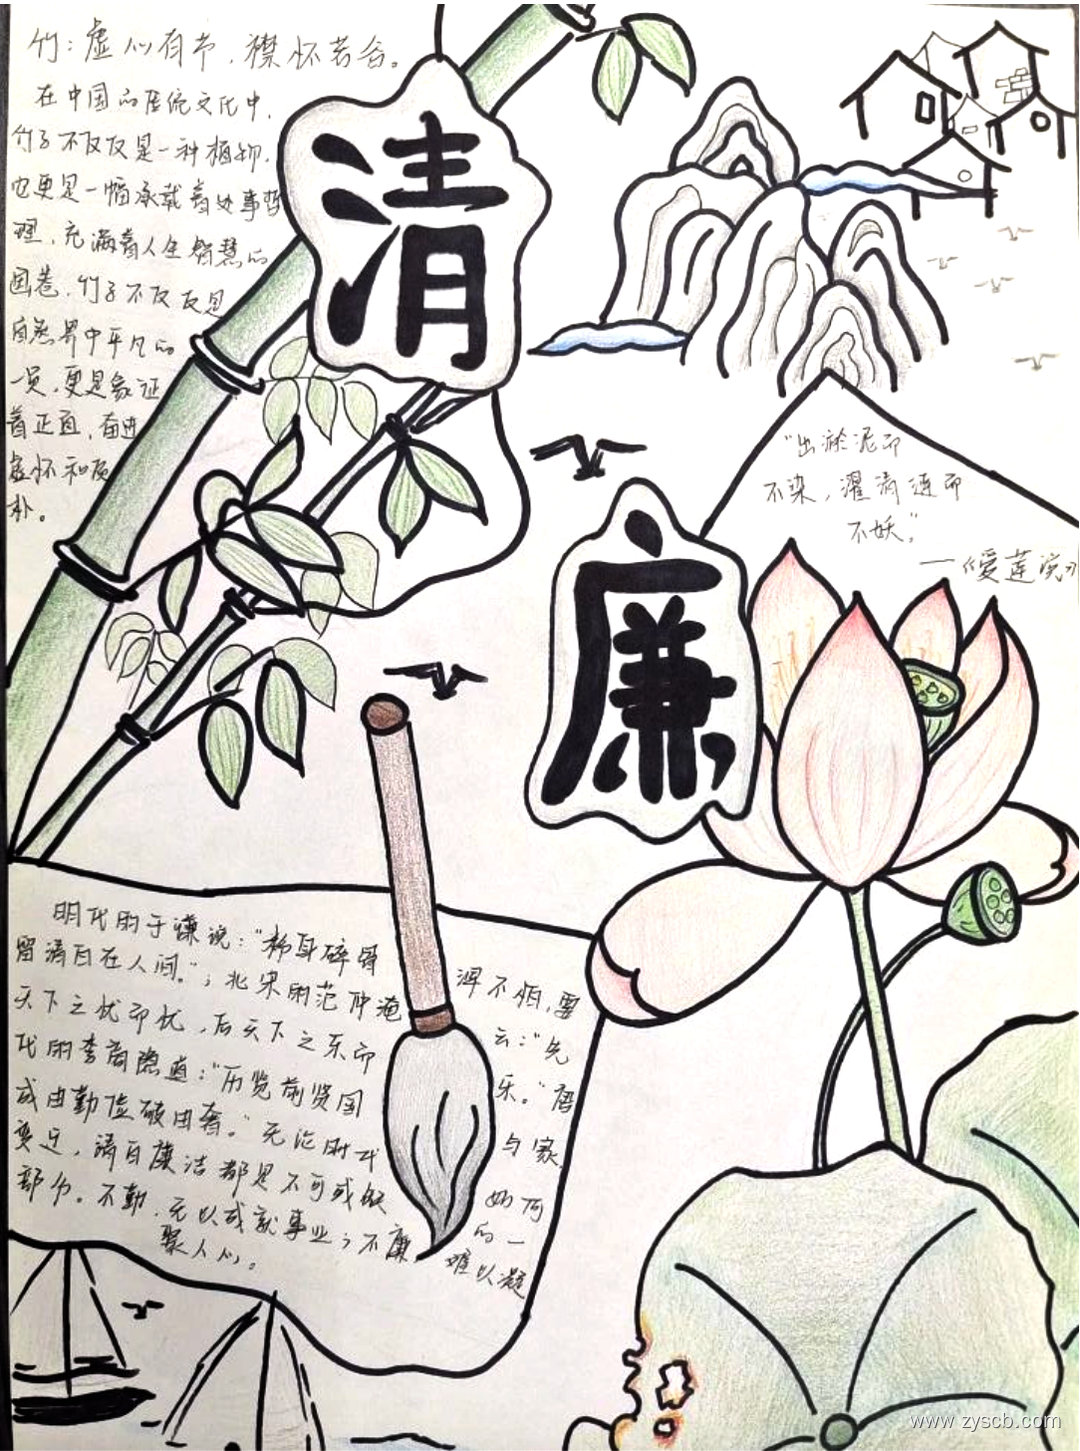 竹：虚心有节，襟怀若谷。
在中国的传统文化中，
竹子不仅仅是一种植物，
也更是一幅承载着处事哲
理，充满着人生智慧的
画卷，竹子不仅仅是
自然界中平凡的
一员，更是象征
着正直，奋进
虚怀和质
朴。
清
廉
"出淤泥而
不染，濯清涟而
不妖，"
—《爱莲说》
明代的于谦说："粉身碎骨浑不怕，要
留清白在人间。"；北宋的范仲淹云："先
天下之忧而忧，后天下之乐而乐。"唐
代的李商隐道："历览前贤国与家，
成由勤俭破由奢。"无论时代如何
变迁，清白廉洁都是不可或缺的一
部分。不勤，无以成就事业；不廉，难以凝
聚人心。
www.zyscb.com